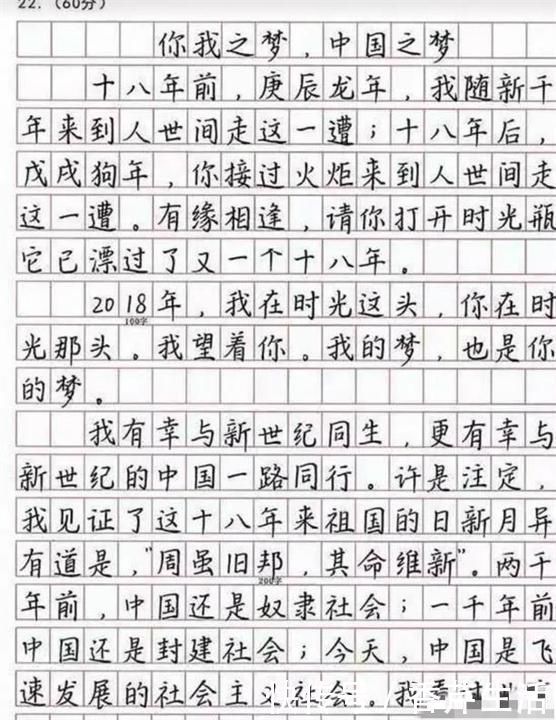 22.（60分）
你我之梦，中国之梦
十八年前，庚辰龙年，我随新千
年来到人世间走这一遭；十八年后，
戊戌狗年，你接过火炬来到人世间走
这一遭。有缘相逢，请你打开时光瓶
它已漂过了又一个十八年。
2018年，我在时光这头，你在时
100字
光那头。我望着你。我的梦，也是你
的梦。
我有幸与新世纪同生，更有幸与
新世纪的中国一路同行。许是注定，
我见证了这十八年来祖国的日新月异
有道是，“周虽旧邦，其命维新”。两千
200字
年前，中国还是奴隶社会；一千年前
中国还是封建社会；今天，中国是飞
速发展的社会主义社会。我看